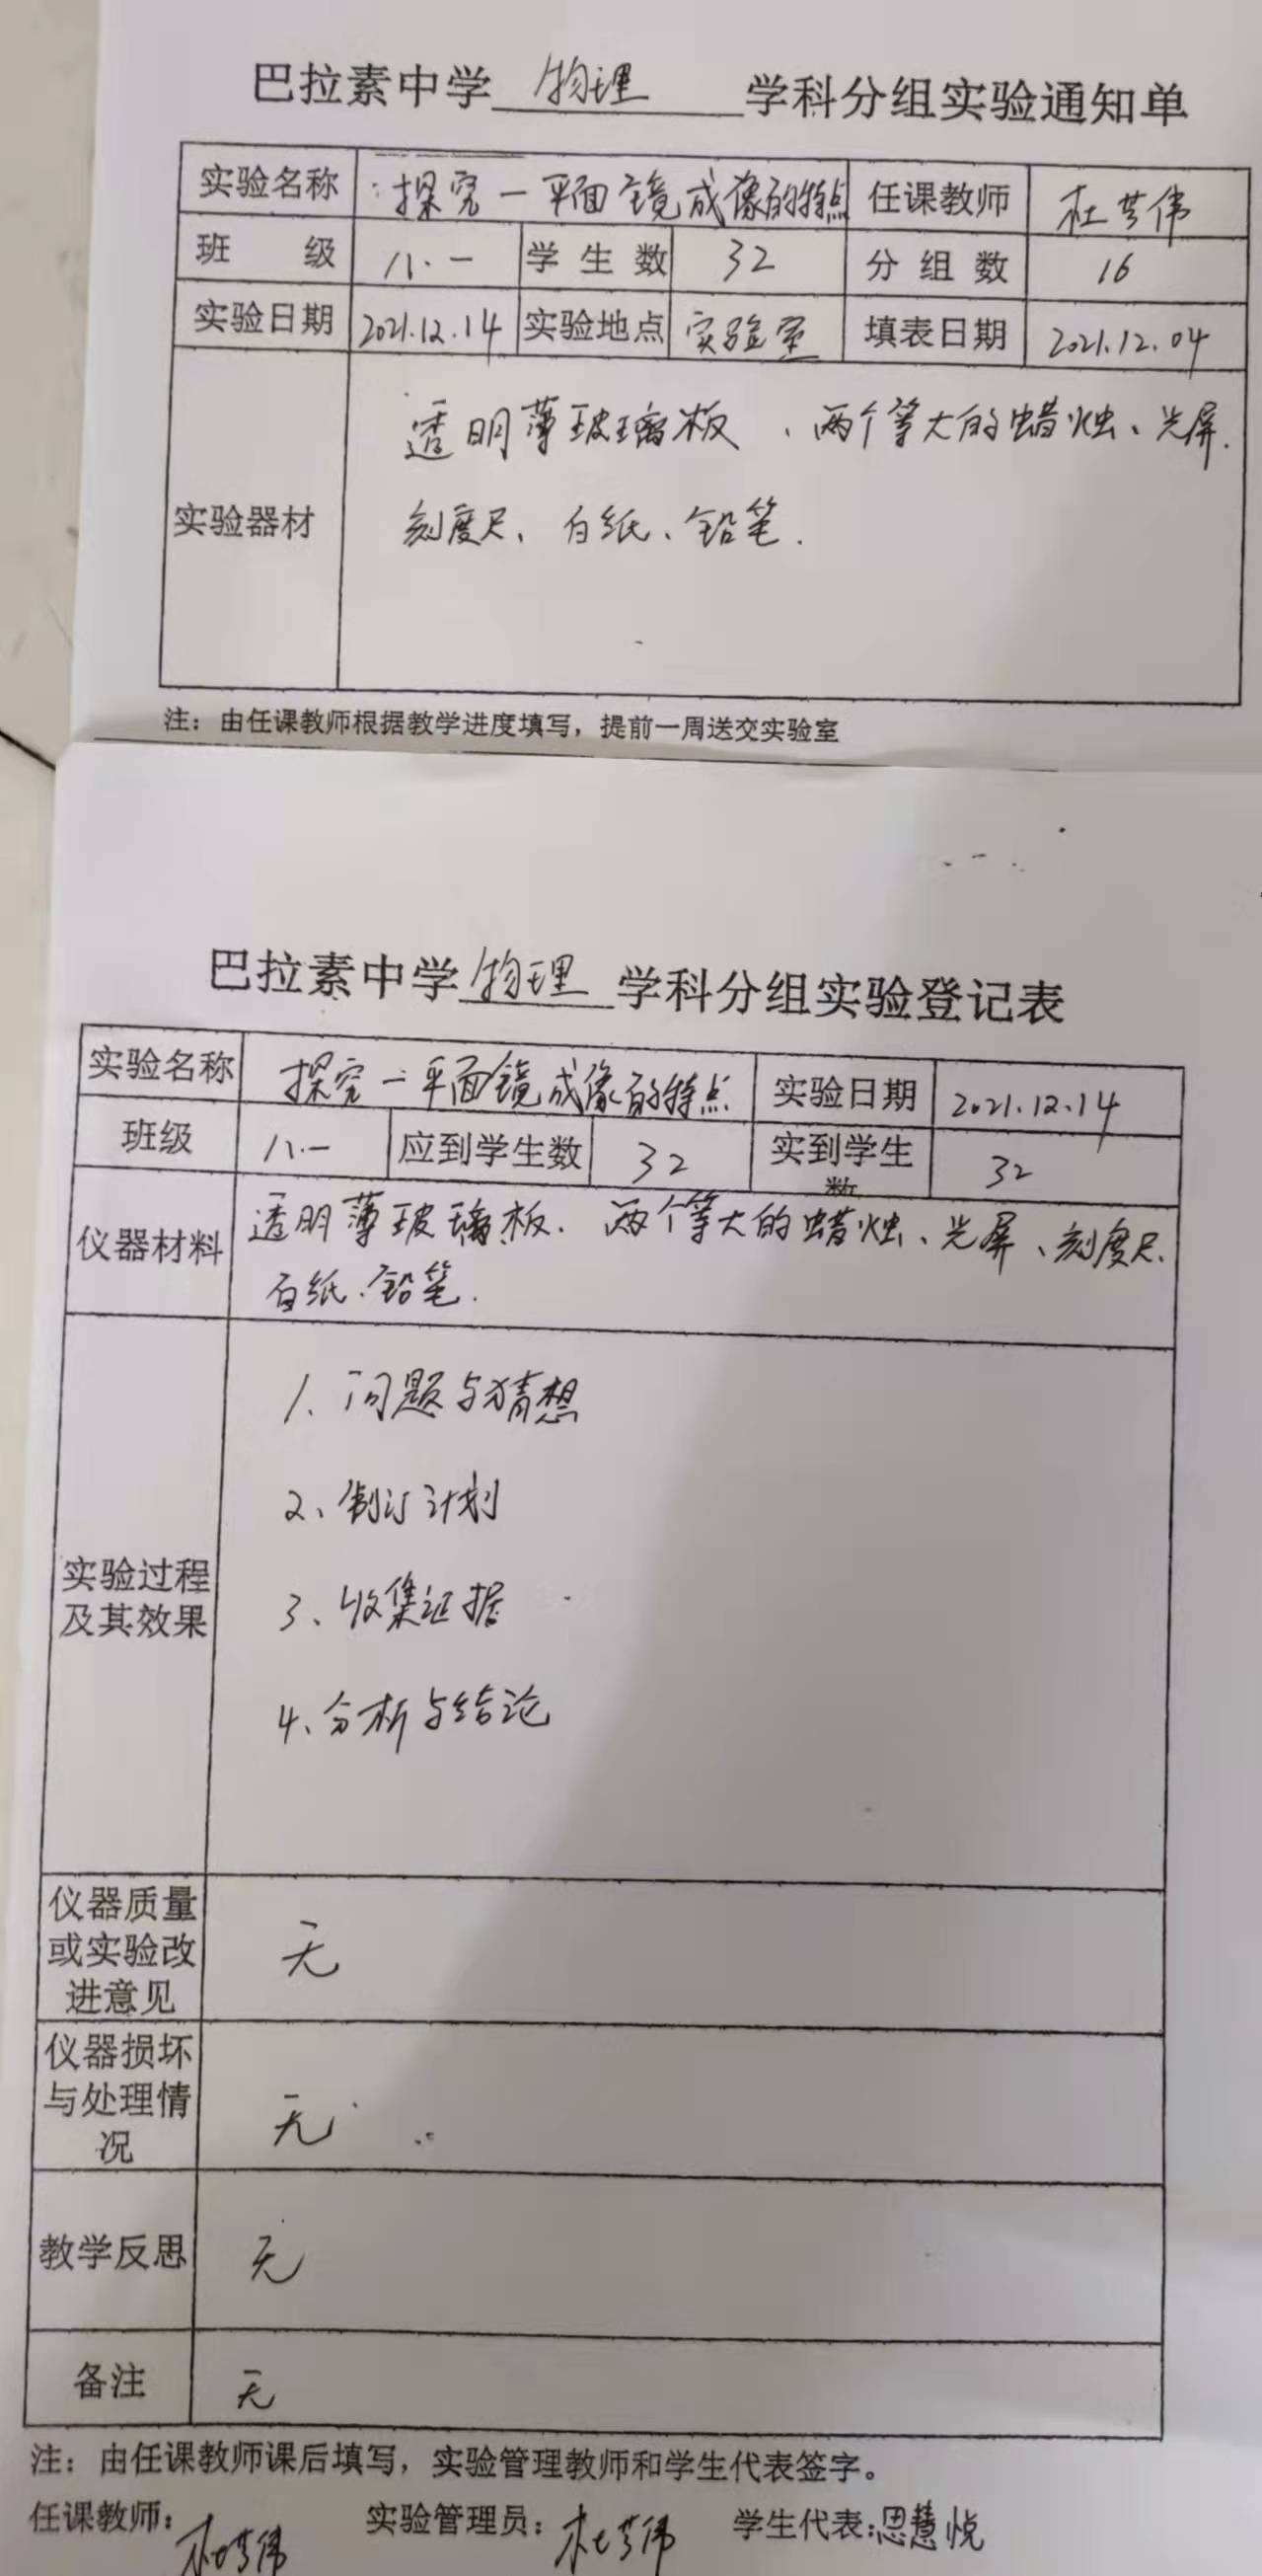 巴拉素中学 物理 学科分组实验通知单
实验名称 探究一平面镜成像的特点 任课教师 杜芳伟
班 级 八.一 学 生 数 32 分 组 数 16
实验日期 2021.12.14 实验地点 实验室 填表日期 2021.12.04
实验器材
透明薄玻璃板、两个等大的蜡烛、光屏.
刻度尺、白纸、铅笔.
注：由任课教师根据教学进度填写，提前一周送交实验室
巴拉素中学 物理 学科分组实验登记表
实验名称 探究一平面镜成像的特点 实验日期 2021.12.14
班级 八.一 应到学生数 32 实到学生数 32
仪器材料
透明薄玻璃板.两个等大的蜡烛、光屏、刻度尺.
白纸.铅笔.
实验过程
及其效果
1、问题与猜想
2、制订计划
3、收集证据
4、分析与结论
仪器质量
或实验改
进意见
无
仪器损坏
与处理情
况
无
教学反思 无
备注 无
注：由任课教师课后填写，实验管理教师和学生代表签字。
任课教师：杜芳伟 实验管理员：杜芳伟 学生代表:思慧悦